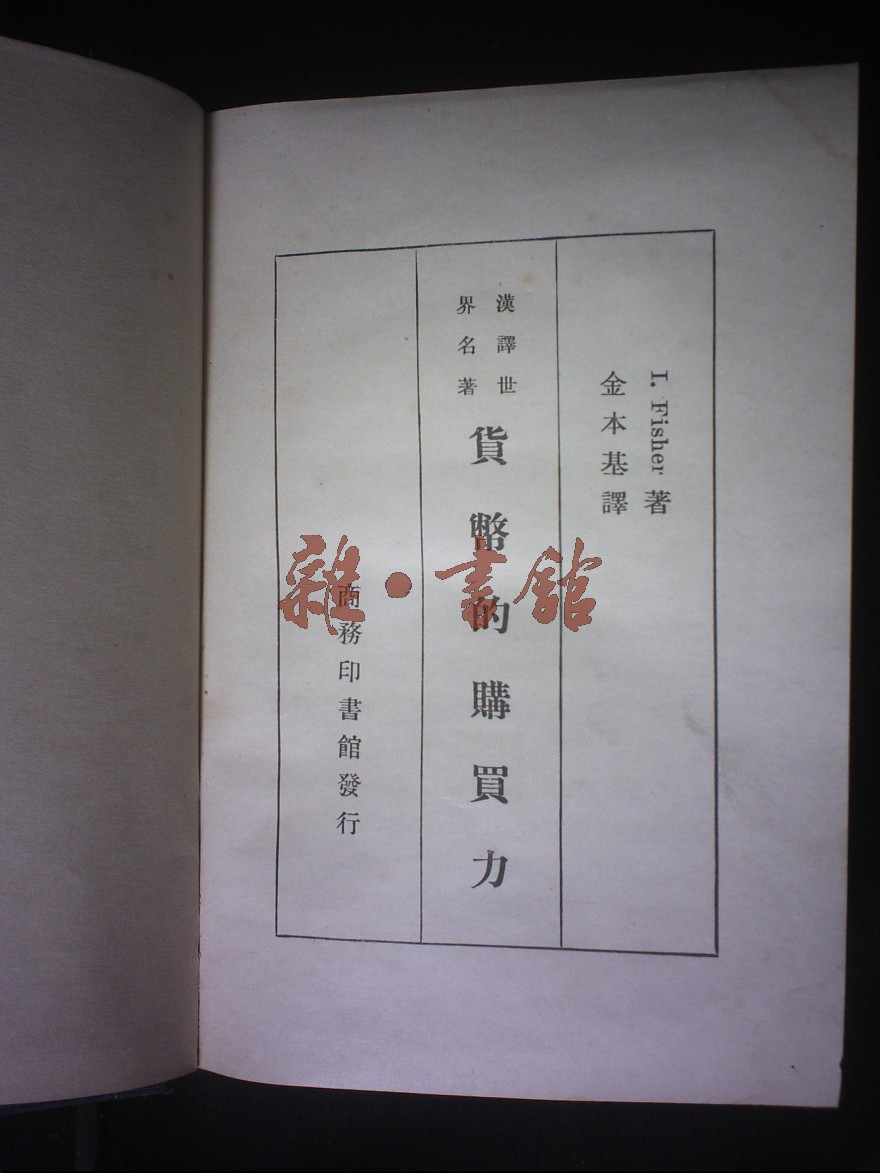 I. Fisher 著
金本基譯
漢譯世
界名著
貨幣的購買力
商務印書館發行
雜·書館